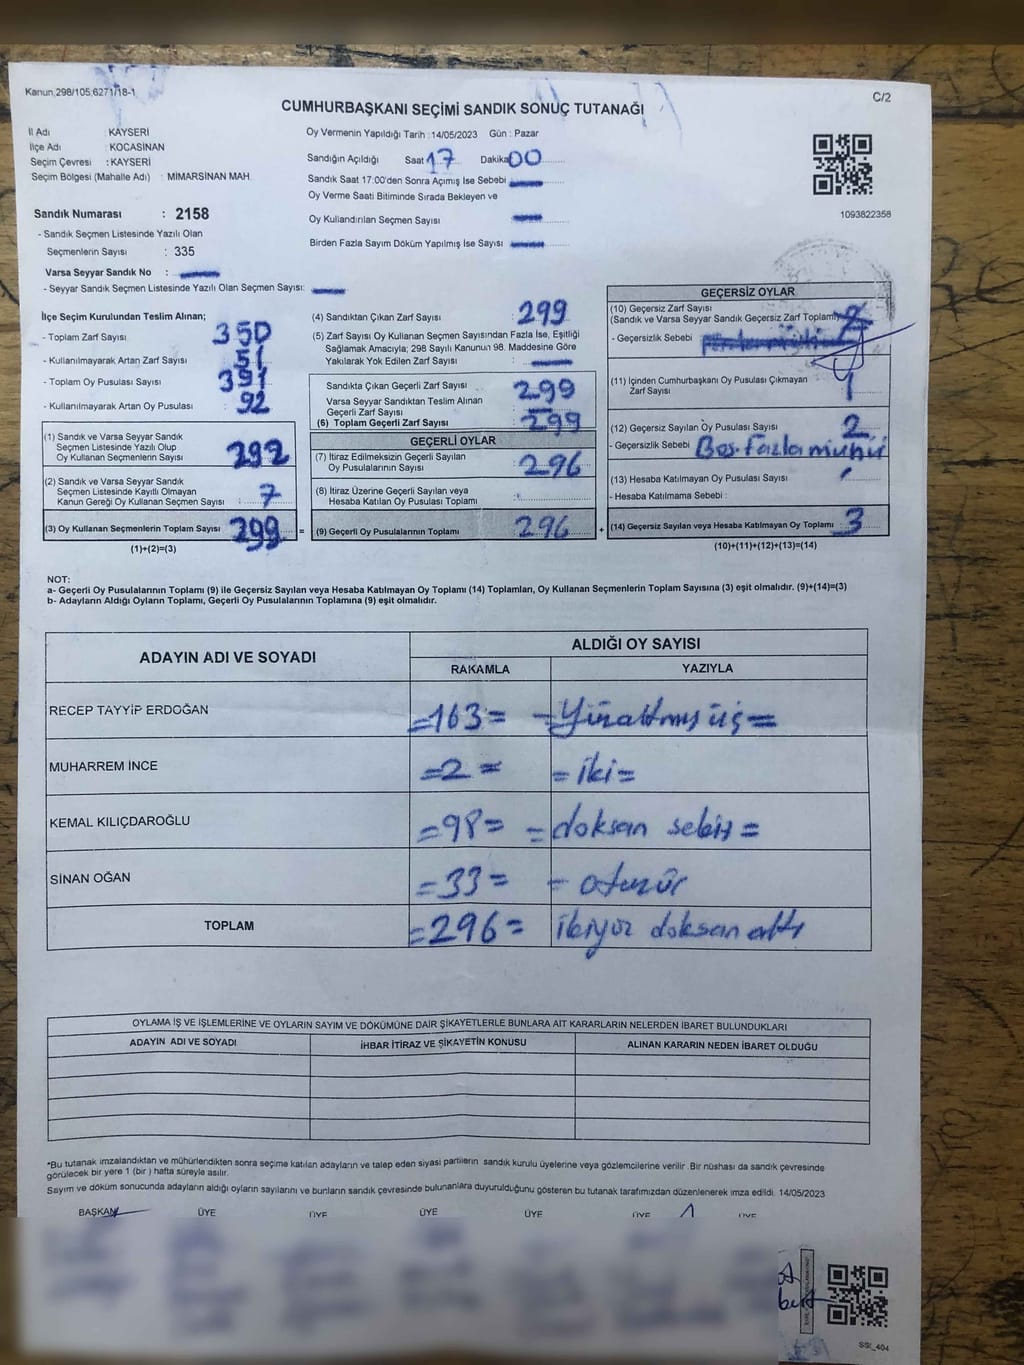 Kanun 298/105,6271/18-1
C/2
CUMHURBAŞKANI SEÇİMİ SANDIK SONUÇ TUTANAĞI
İl Adı : KAYSERİ
İlçe Adı : KOCASİNAN
Seçim Çevresi : KAYSERİ
Seçim Bölgesi (Mahalle Adı) : MİMARSİNAN MAH.
Sandık Numarası : 2158
- Sandık Seçmen Listesinde Yazılı Olan
Seçmenlerin Sayısı : 335
Varsa Seyyar Sandık No :
- Seyyar Sandık Seçmen Listesinde Yazılı Olan Seçmen Sayısı:
Oy Vermenin Yapıldığı Tarih :14/05/2023 Gün : Pazar
Sandığın Açıldığı Saat 17 Dakika 00
Sandık Saat 17:00'den Sonra Açımış İse Sebebi
Oy Verme Saati Bitiminde Sırada Bekleyen ve
Oy Kullandırılan Seçmen Sayısı
Birden Fazla Sayım Döküm Yapılmış İse Sayısı
1093822358
İlçe Seçim Kurulundan Teslim Alınan;
- Toplam Zarf Sayısı : 350
- Kullanılmayarak Artan Zarf Sayısı : 51
- Toplam Oy Pusulası Sayısı : 391
- Kullanılmayarak Artan Oy Pusulası : 92
(1) Sandık ve Varsa Seyyar Sandık
Seçmen Listesinde Yazılı Olup
Oy Kullanan Seçmenlerin Sayısı : 292
(2) Sandık ve Varsa Seyyar Sandık
Seçmen Listesinde Kayıtlı Olmayan
Kanun Gereği Oy Kullanan Seçmen Sayısı : 7
(3) Oy Kullanan Seçmenlerin Toplam Sayısı 299
(1)+(2)=(3)
=
(4) Sandıktan Çıkan Zarf Sayısı : 299
(5) Zarf Sayısı Oy Kullanan Seçmen Sayısından Fazla İse, Eşitliği
Sağlamak Amacıyla; 298 Sayılı Kanunun 98. Maddesine Göre
Yakılarak Yok Edilen Zarf Sayısı :
Sandıkta Çıkan Geçerli Zarf Sayısı : 299
Varsa Seyyar Sandıktan Teslim Alınan
Geçerli Zarf Sayısı
(6) Toplam Geçerli Zarf Sayısı : 299
GEÇERLİ OYLAR
(7) İtiraz Edilmeksizin Geçerli Sayılan
Oy Pusulalarının Sayısı : 296
(8) İtiraz Üzerine Geçerli Sayılan veya
Hesaba Katılan Oy Pusulası Toplamı
(9) Geçerli Oy Pusulalarının Toplamı : 296
+
GEÇERSİZ OYLAR
(10) Geçersiz Zarf Sayısı
(Sandık ve Varsa Seyyar Sandık Geçersiz Zarf Toplamı)
- Geçersizlik Sebebi :
(11) İçinden Cumhurbaşkanı Oy Pusulası Çıkmayan
Zarf Sayısı : 1
(12) Geçersiz Sayılan Oy Pusulası Sayısı : 2
- Geçersizlik Sebebi : Boş. Fazla mühür
(13) Hesaba Katılmayan Oy Pusulası Sayısı :
- Hesaba Katılmama Sebebi :
(14) Geçersiz Sayılan veya Hesaba Katılmayan Oy Toplamı : 3
(10)+(11)+(12)+(13)=(14)
NOT:
a- Geçerli Oy Pusulalarının Toplamı (9) ile Geçersiz Sayılan veya Hesaba Katılmayan Oy Toplamı (14) Toplamları, Oy Kullanan Seçmenlerin Toplam Sayısına (3) eşit olmalıdır. (9)+(14)=(3)
b- Adayların Aldığı Oyların Toplamı, Geçerli Oy Pusulalarının Toplamına (9) eşit olmalıdır.
ADAYIN ADI VE SOYADI
ALDIĞI OY SAYISI
RAKAMLA YAZIYLA
RECEP TAYYİP ERDOĞAN =163= =Yüzaltmış üç=
MUHARREM İNCE =2= =iki=
KEMAL KILIÇDAROĞLU =98= =doksan sekiz=
SİNAN OĞAN =33= =otuzüç
TOPLAM =296= ikiyüz doksan altı
OYLAMA İŞ VE İŞLEMLERİNE VE OYLARIN SAYIM VE DÖKÜMÜNE DAİR ŞİKAYETLERLE BUNLARA AİT KARARLARIN NELERDEN İBARET BULUNDUKLARI
ADAYIN ADI VE SOYADI İHBAR İTİRAZ VE ŞİKAYETİN KONUSU ALINAN KARARIN NEDEN İBARET OLDUĞU
*Bu tutanak imzalandıktan ve mühürlendikten sonra seçime katılan adayların ve talep eden siyasi partilerin sandık kurulu üyelerine veya gözlemcilerine verilir .Bir nüshası da sandık çevresinde
görülecek bir yere 1 (bir ) hafta süreyle asılır.
Sayım ve döküm sonucunda adayların aldığı oyların sayılarını ve bunların sandık çevresinde bulunanlara duyurulduğunu gösteren bu tutanak tarafımızdan düzenlenerek imza edildi. 14/05/2023
BAŞKAN ÜYE ÜYE ÜYE ÜYE ÜYE ÜYE
SSİ_404